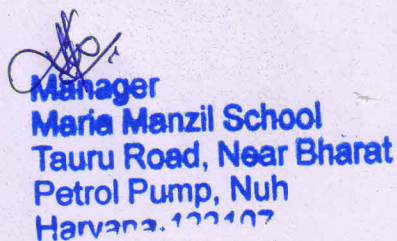 Manager
Maria Manzil School
Tauru Road, Near Bharat
Petrol Pump, Nuh
Haryana.